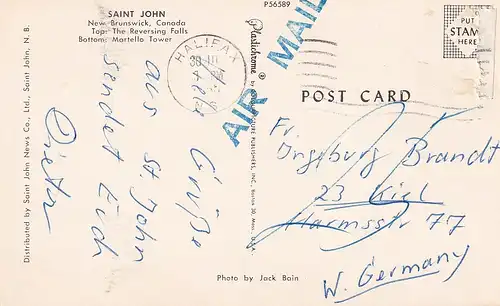 SAINT JOHN
New Brunswick, Canada
Top: The Reversing Falls
Bottom: Martello Tower
P56589
PUT
STAMP
HERE
AIR MAIL
HALIFAX
POST CARD
Plastichrome ®
Distributed by Saint John News Co., Ltd., Saint John, N. B.
Grüße
aus St. John
sendet Euch
Dieter
Fr.
Ingeburg Brandt
23 Kiel
Harmsstr 77
W. Germany
Photo by Jack Bain